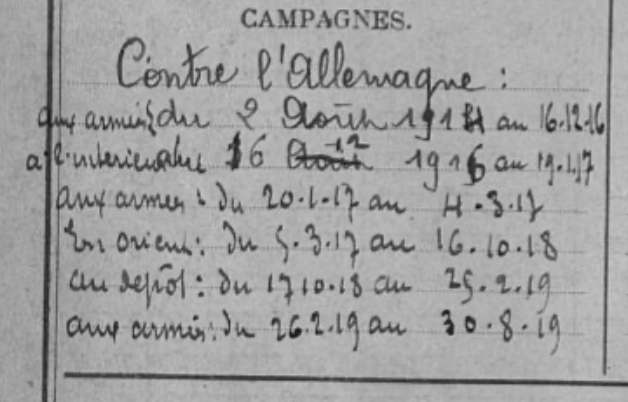 CAMPAGNES.
Contre l'Allemagne :
aux armées du 2 Août 1914 au 16.12.16
a l'interieur du 16 12 1916 au 19.1.17
aux armées : du 20.1.17 au 4.3.17
En orient : du 5.3.17 au 16.10.18
au depôt : du 17 10.18 au 25.2.19
aux armées : du 26.2.19 au 30.8.19